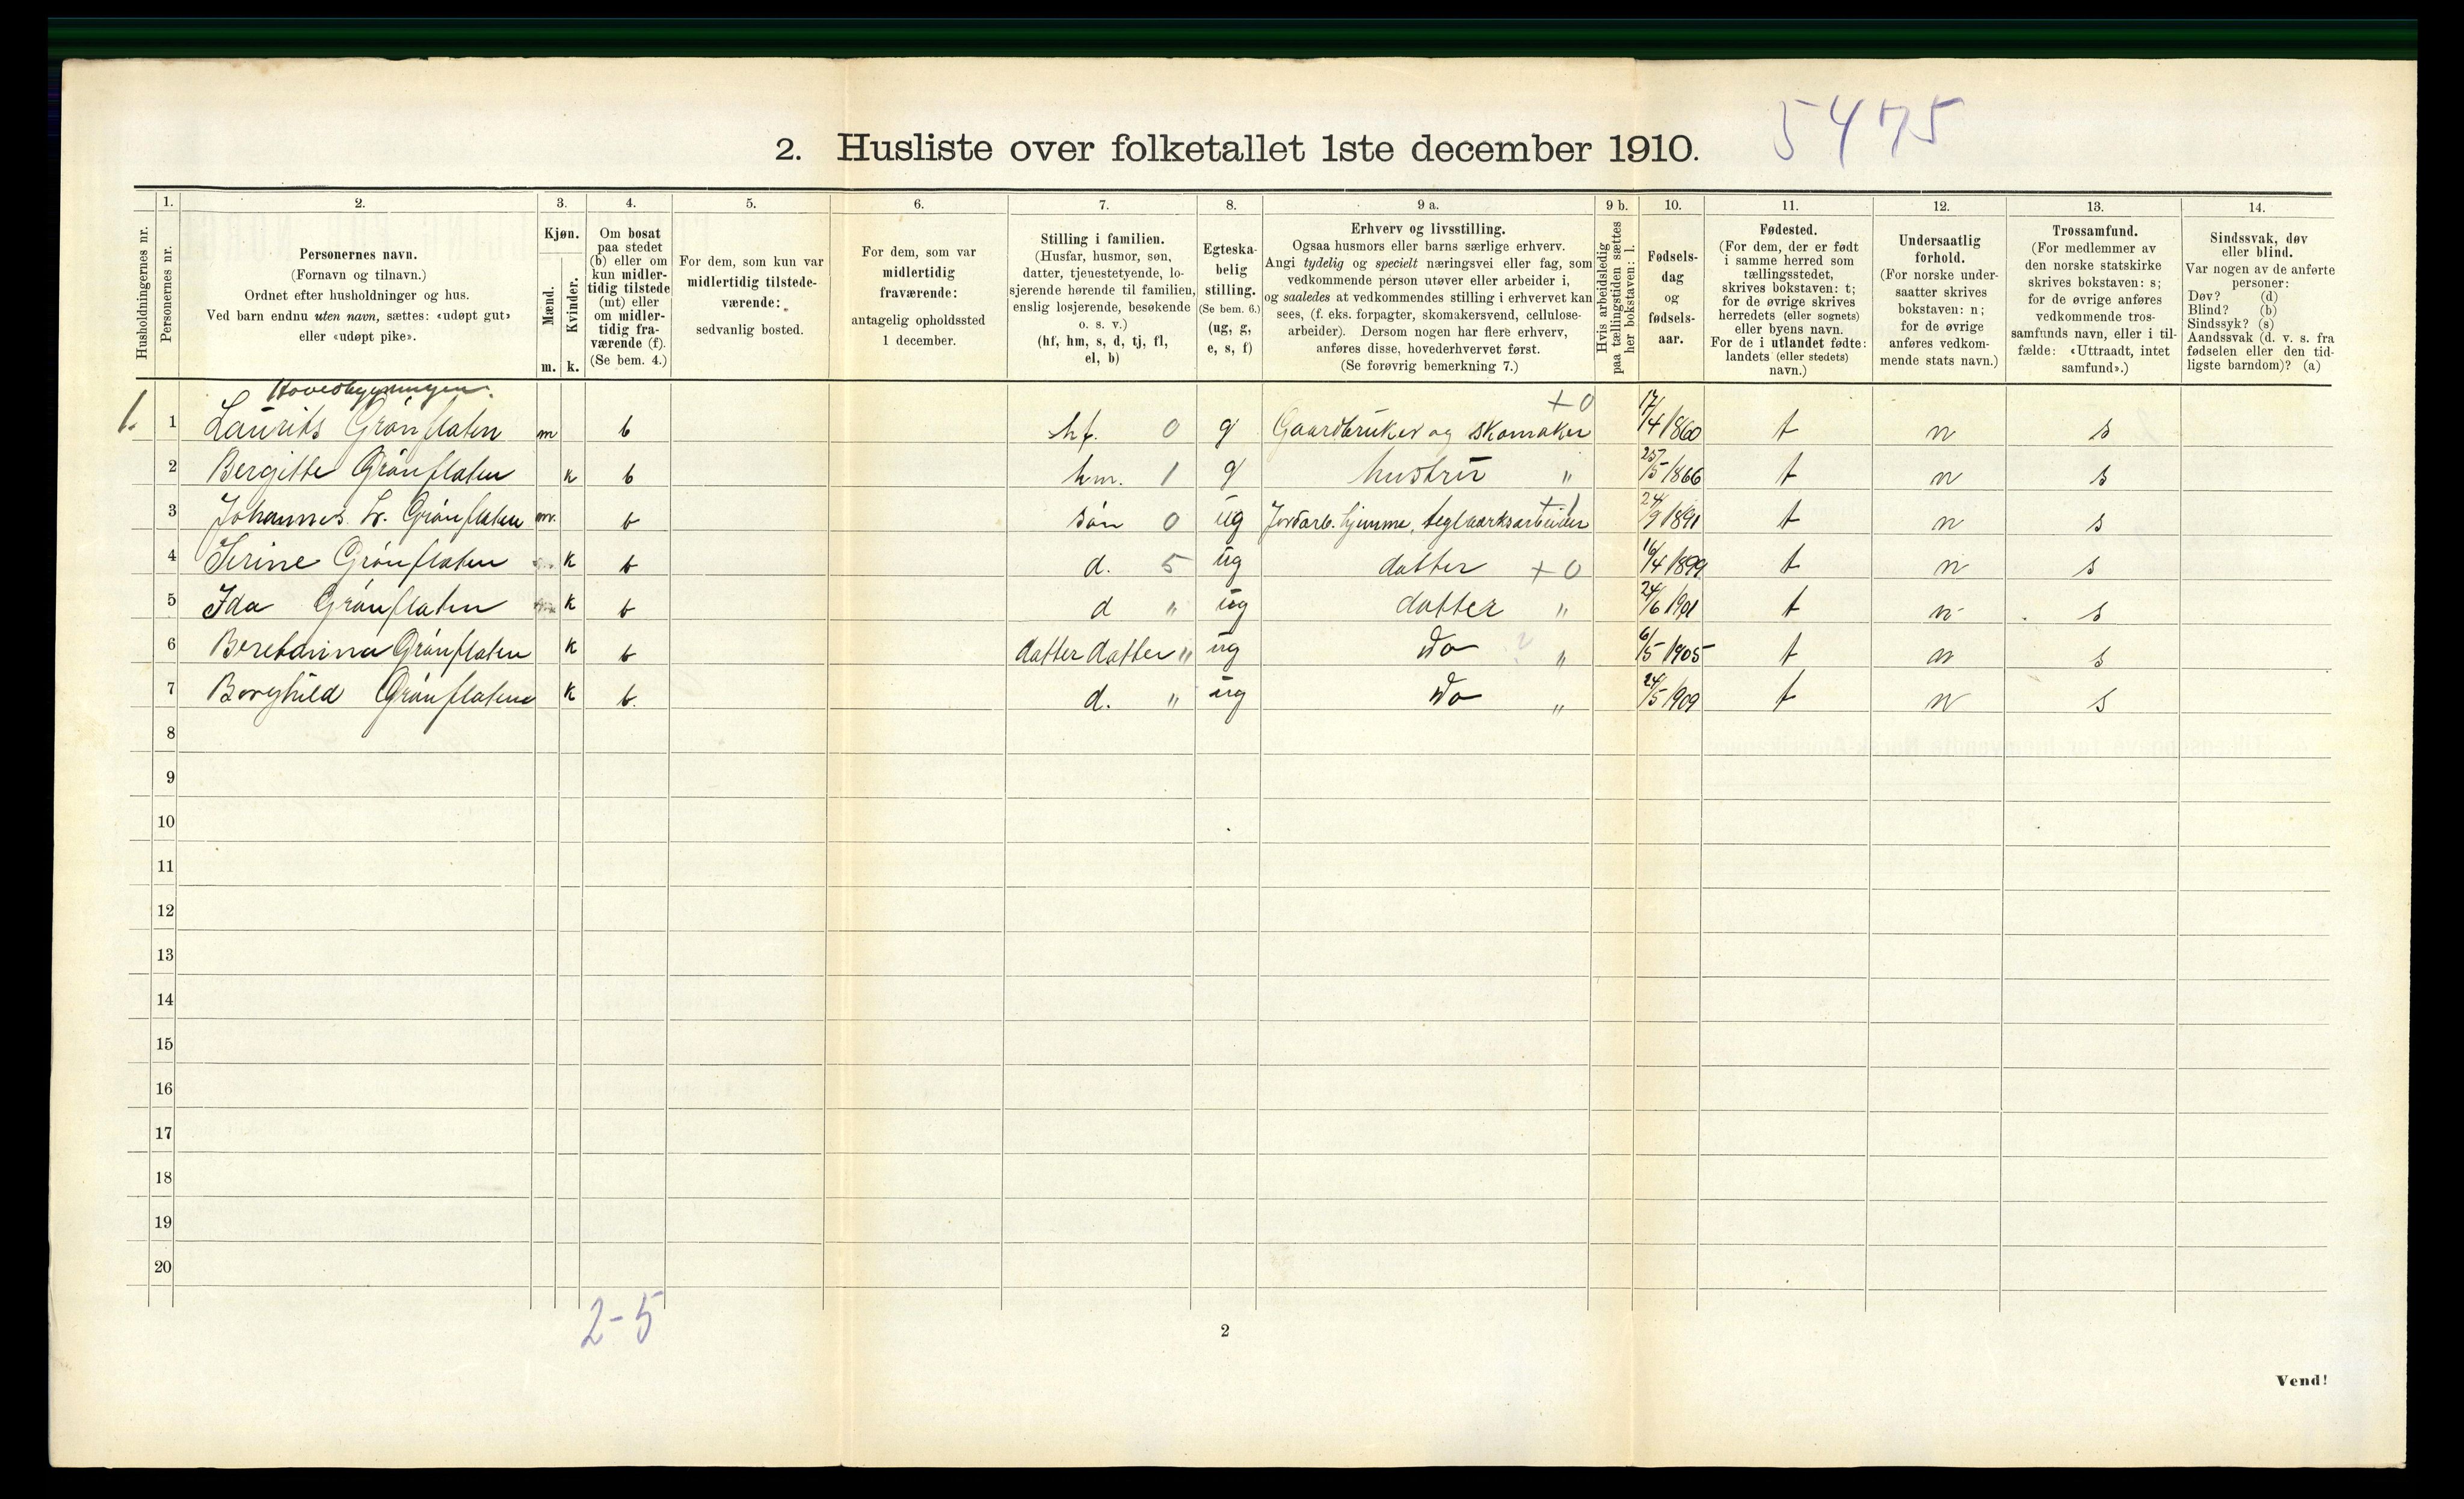 5475
2. Husliste over folketallet 1ste december 1910.
Husholdningernes nr.
1.
Personernes nr.
2.
Personernes navn.
(Fornavn og tilnavn.)
Ordnet efter husholdninger og hus.
Ved barn endnu uten navn, sættes: «udøpt gut»
eller «udøpt pike».
3.
Kjøn.
Mænd.
Kvinder.
m. k.
4.
Om bosat
paa stedet
(b) eller om
kun midler-
tidig tilstede
(mt) eller
om midler-
tidig fra-
værende (f).
(Se bem. 4.)
5.
For dem, som kun var
midlertidig tilstede-
værende:
sedvanlig bosted.
6.
For dem, som var
midlertidig
fraværende:
antagelig opholdssted
1 december.
7.
Stilling i familien.
(Husfar, husmor, søn,
datter, tjenestetyende, lo-
sjerende hørende til familien,
enslig losjerende, besøkende
o. s. v.)
(hf, hm, s, d, tj, fl,
el, b)
8.
Egteska-
belig
stilling.
(Se bem. 6.)
(ug, g,
e, s, f)
9 a.
Erhverv og livsstilling.
Ogsaa husmors eller barns særlige erhverv.
Angi tydelig og specielt næringsvei eller fag, som
vedkommende person utøver eller arbeider i,
og saaledes at vedkommendes stilling i erhvervet kan
sees, (f. eks. forpagter, skomakersvend, cellulose-
arbeider). Dersom nogen har flere erhverv,
anføres disse, hovederhvervet først.
(Se forøvrig bemerkning 7.)
9 b.
Hvis arbeidsledig
paa tællingstiden sættes
her bokstaven: l.
10.
Fødsels-
dag
og
fødsels-
aar.
11.
Fødested.
(For dem, der er født
i samme herred som
tællingsstedet,
skrives bokstaven: t;
for de øvrige skrives
herredets (eller sognets)
eller byens navn.
For de i utlandet fødte:
landets (eller stedets)
navn.)
12.
Undersaatlig
forhold.
(For norske under-
saatter skrives
bokstaven: n;
for de øvrige
anføres vedkom-
mende stats navn.)
13.
Trossamfund.
(For medlemmer av
den norske statskirke
skrives bokstaven: s;
for de øvrige anføres
vedkommende tros-
samfunds navn, eller i til-
fælde: «Uttraadt, intet
samfund».)
14.
Sindssvak, døv
eller blind.
Var nogen av de anførte
personer:
Døv? (d)
Blind? (b)
Sindssyk? (s)
Aandssvak (d. v. s. fra
fødselen eller den tid-
ligste barndom)? (a)
Hovedbygningen.
1. 1 Laurits Grønflaten m b hf. 0 g Gaardbruker og skomaker +0 17/4 1860 t n s
2 Bergitte Grønflaten k b hm. 1 g hustru " 25/5 1866 t n s
3 Johannes L. Grønflaten m. b søn 0 ug Jordarb. hjemme, teglværksarbeider +1 24/9 1891 t n s
4 Serine Grønflaten k b d. 5 ug datter +0 16/4 1899 t n s
5 Ida Grønflaten k b d " ug datter " 24/6 1901 t n s
6 Beretanna Grønflaten k b datter datter " ug Do ? " 6/5 1905 t n s
7 Borghild Grønflaten k b. d. " ug Do " 24/5 1909 t n s
8
9
10
11
12
13
14
15
16
17
18
19
20
2-5
2
Vend!